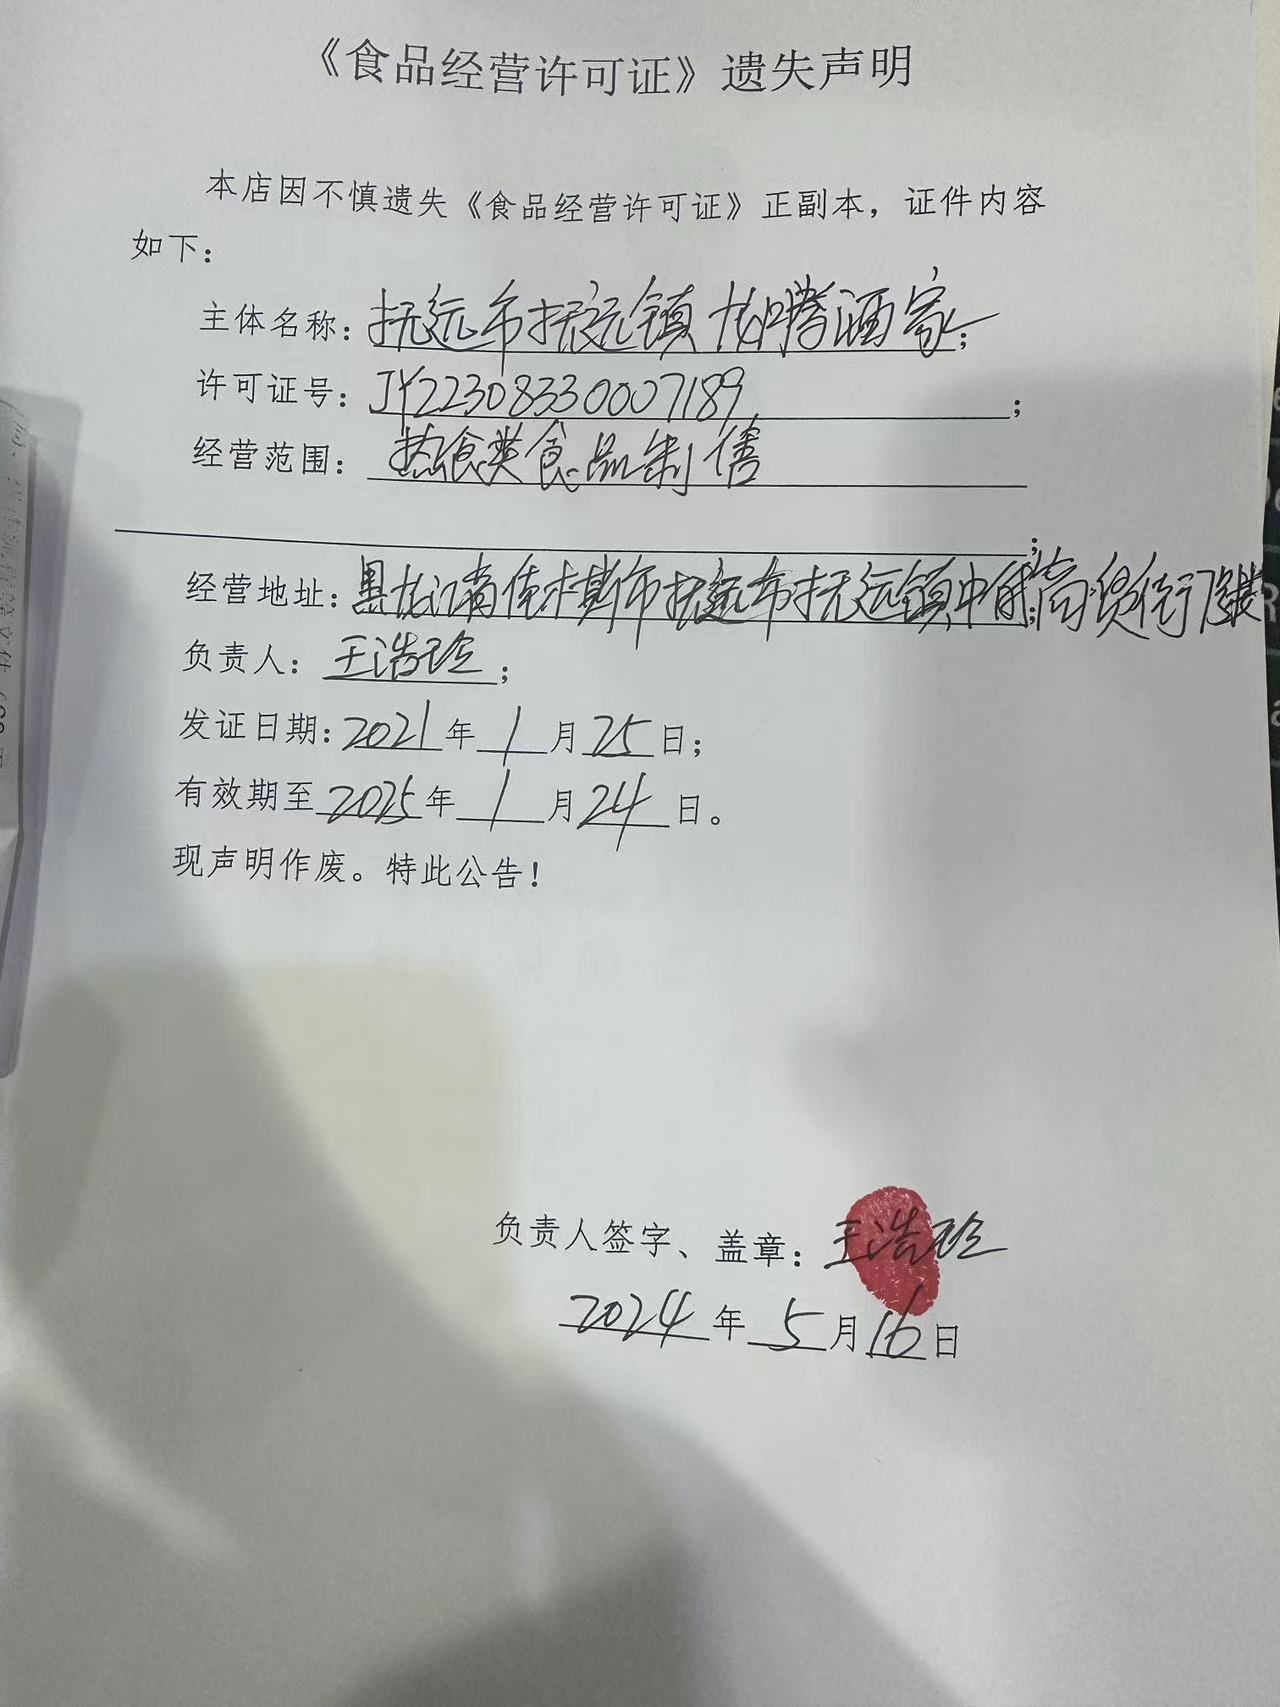 《食品经营许可证》遗失声明
本店因不慎遗失《食品经营许可证》正副本，证件内容
如下：
主体名称：抚远市抚远镇龙腾酒家；
许可证号：JY22308330007189；
经营范围：热食类食品制售
；
经营地址：黑龙江省佳木斯市抚远市抚远镇中俄商贸街
负责人：王浩玲；
发证日期：2021年1月25日；
有效期至2025年1月24日。
现声明作废。特此公告！
负责人签字、盖章：王浩玲
2024年5月16日